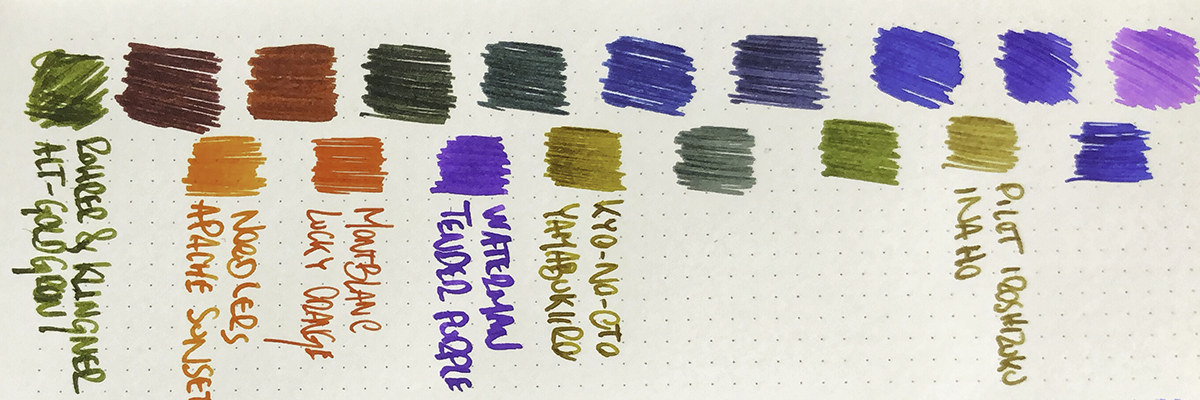 ROHRER & KLINGNER
ALT-GOLDGRÜN
NOODLERS
APACHE SUNSET
MONTBLANC
LUCKY ORANGE
WATERMAN
TENDER PURPLE
KYO-NO-OTO
YAMABUKIIRO
PILOT IROSHIZUKU
INA HO